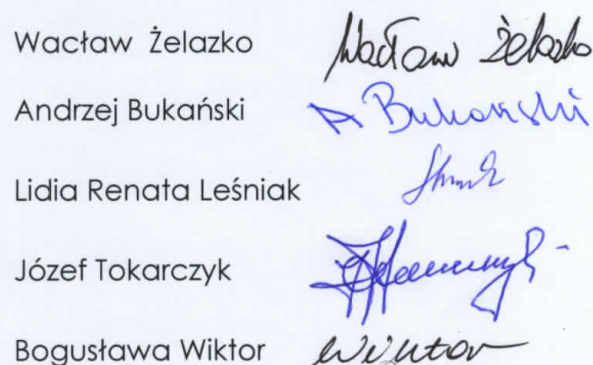 Wacław Żelazko Wacław Żelazko
Andrzej Bukański A Bukański
Lidia Renata Leśniak
Józef Tokarczyk
Bogusława Wiktor Wiktor